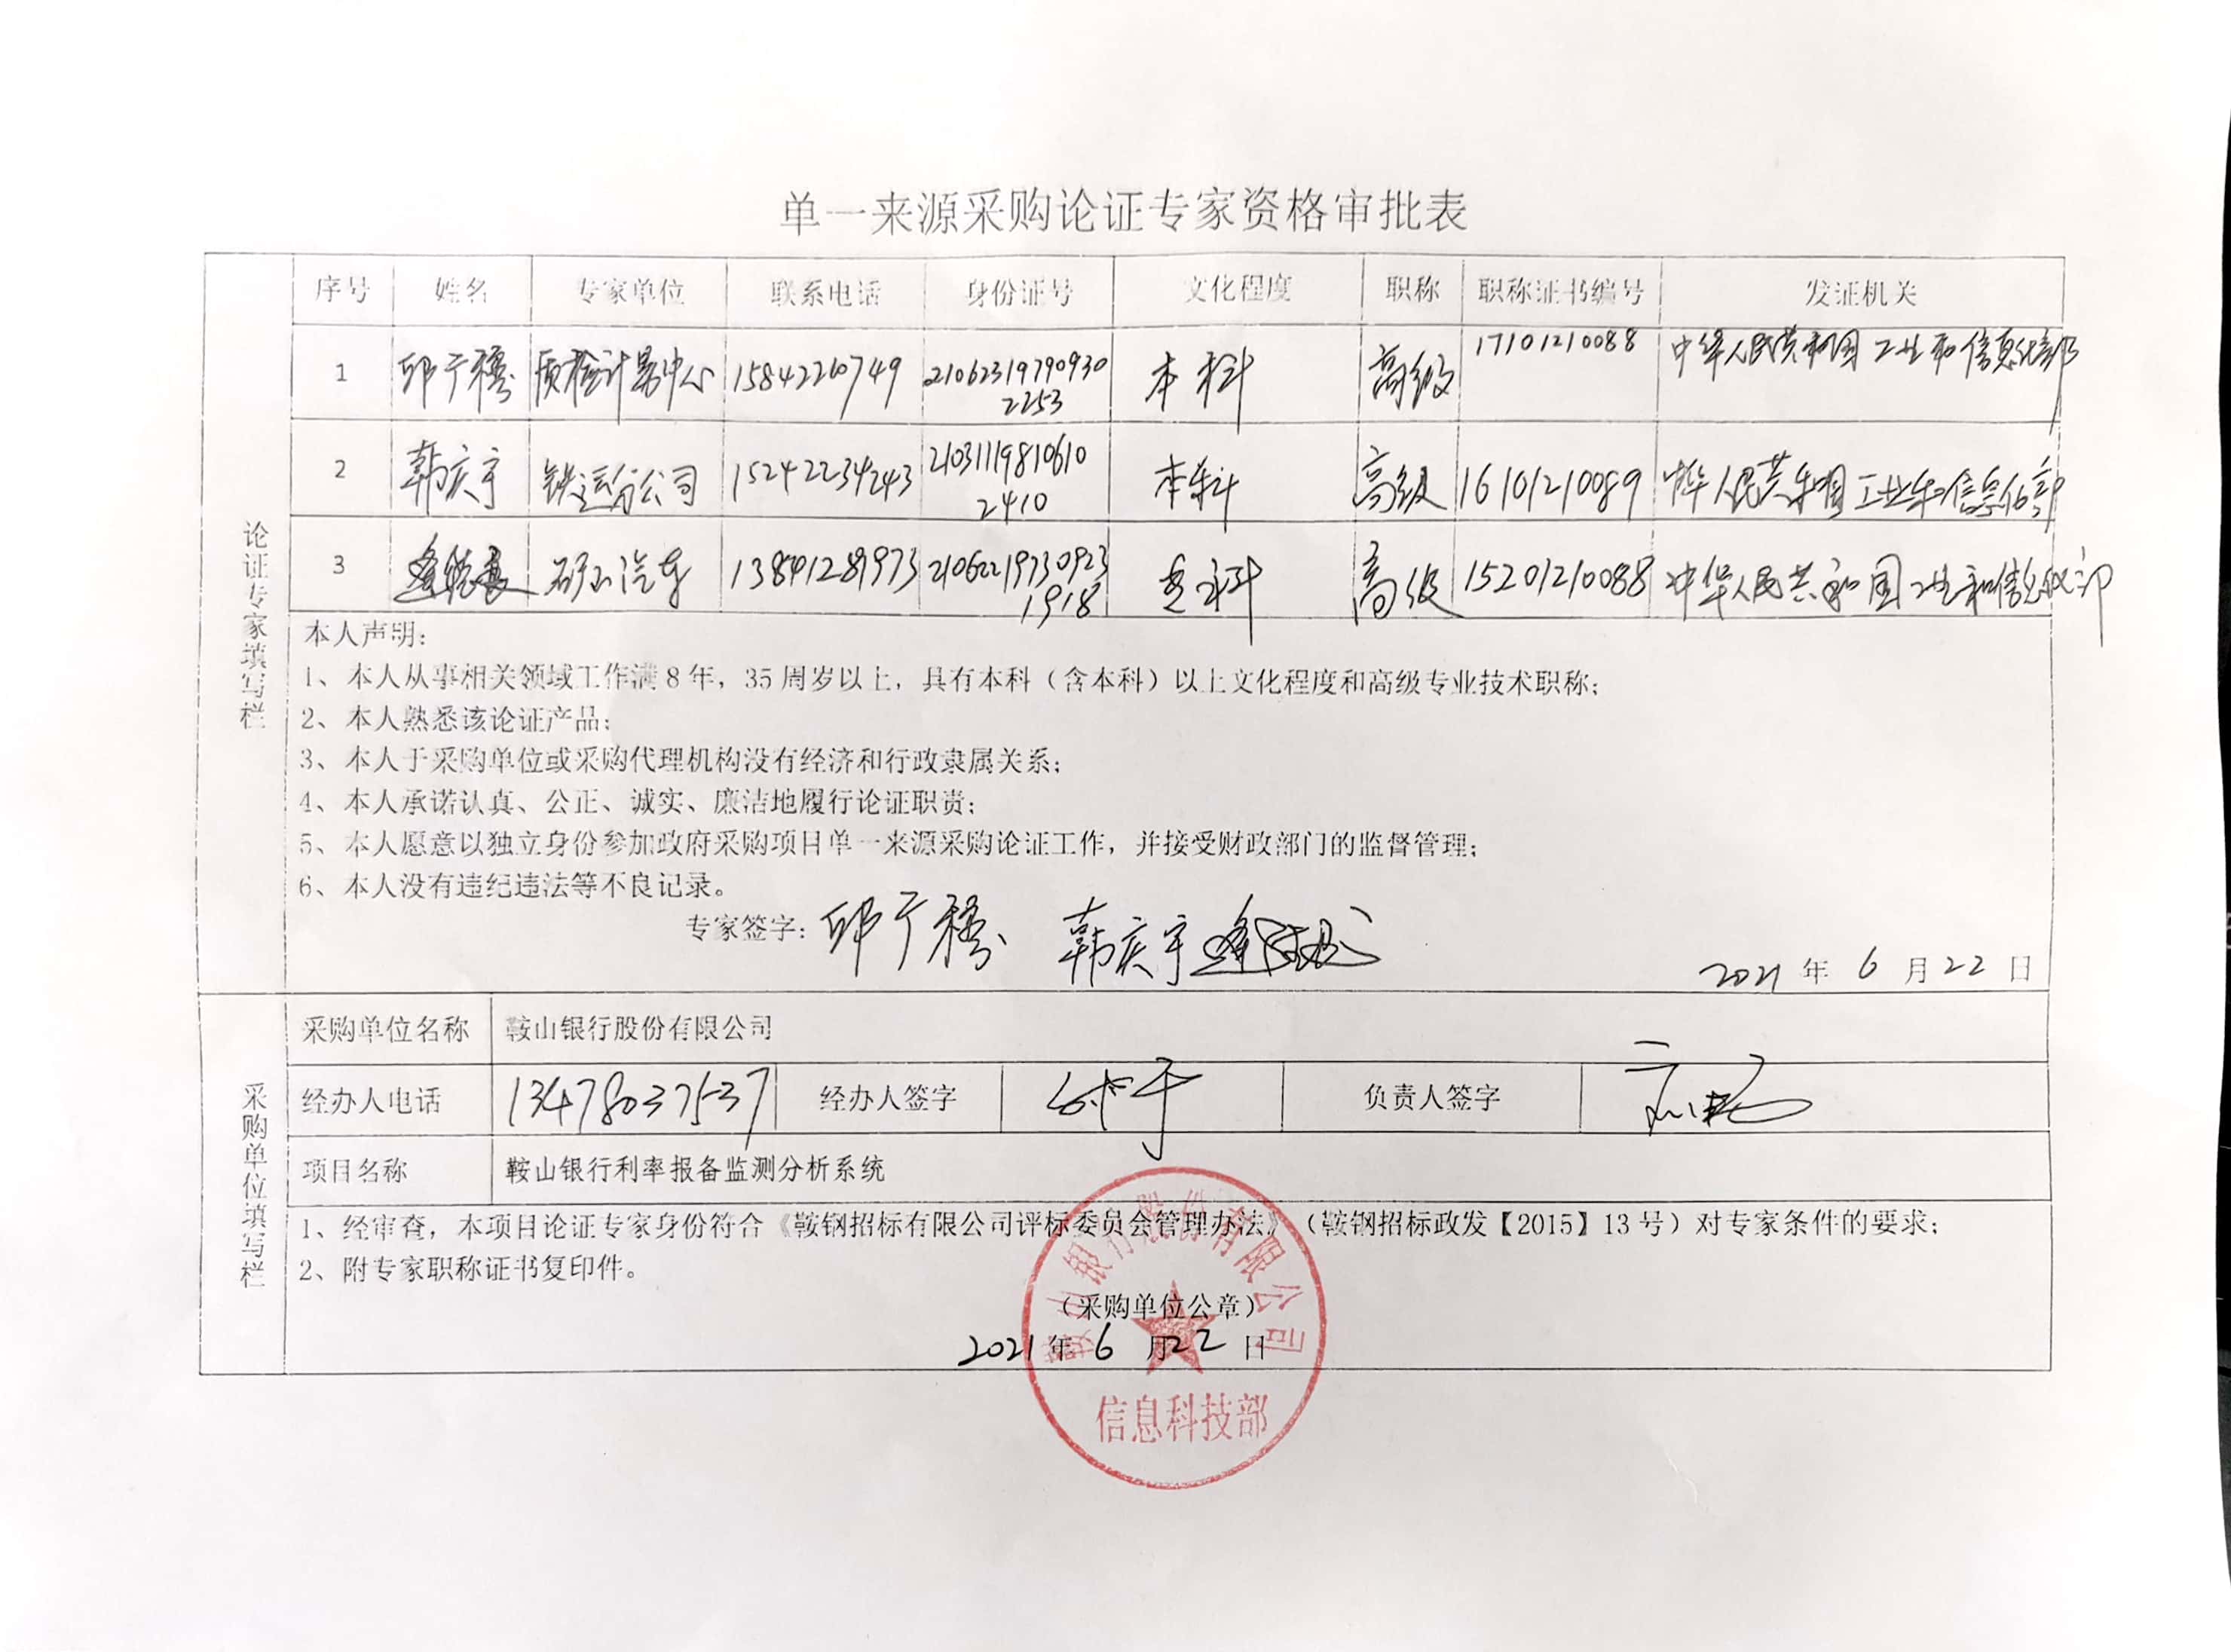 单一来源采购论证专家资格审批表
序号 姓名 专家单位 联系电话 身份证号 文化程度 职称 职称证书编号 发证机关
1 邱于穆 质检计量中心 15842260749 210623197909302253 本科 高级 17101210088 中华人民共和国工业和信息化部
2 韩庆宇 铁运分公司 15242234243 210311198106102410 本科 高级 16101210089 中华人民共和国工业和信息化部
3 矿山汽车 13841289973 210622197309231918 本科 高级 15201210088 中华人民共和国工业和信息化部
论证专家填写栏
本人声明：
1、本人从事相关领域工作满8年，35周岁以上，具有本科（含本科）以上文化程度和高级专业技术职称；
2、本人熟悉该论证产品；
3、本人于采购单位或采购代理机构没有经济和行政隶属关系；
4、本人承诺认真、公正、诚实、廉洁地履行论证职责；
5、本人愿意以独立身份参加政府采购项目单一来源采购论证工作，并接受财政部门的监督管理；
6、本人没有违纪违法等不良记录。
专家签字：邱于穆 韩庆宇
2021年6月22日
采购单位填写栏
采购单位名称 鞍山银行股份有限公司
经办人电话 13478037537 经办人签字 负责人签字
项目名称 鞍山银行利率报备监测分析系统
1、经审查，本项目论证专家身份符合《鞍钢招标有限公司评标委员会管理办法》（鞍钢招标政发【2015】13号）对专家条件的要求；
2、附专家职称证书复印件。
（采购单位公章）
2021年6月22日
鞍山银行股份有限公司
信息科技部